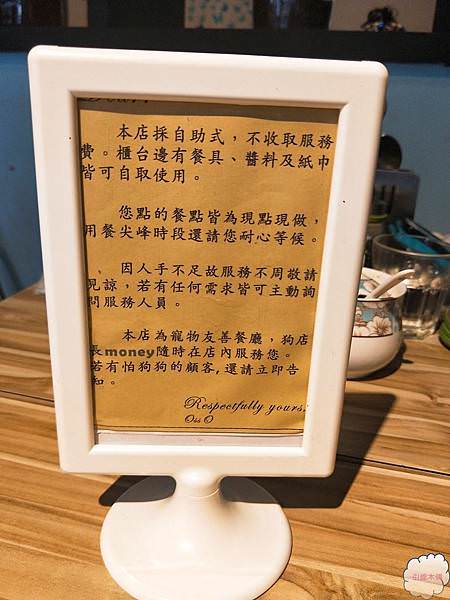 本店採自助式，不收取服務
費。櫃台邊有餐具、醬料及紙巾
皆可自取使用。
您點的餐點皆為現點現做，
用餐尖峰時段還請您耐心等候。
因人手不足故服務不周敬請
見諒，若有任何需求皆可主動詢
問服務人員。
本店為寵物友善餐廳，狗店
長money隨時在店內服務您。
若有怕狗狗的顧客，還請立即告
知。
Respectfully yours,
Oss O